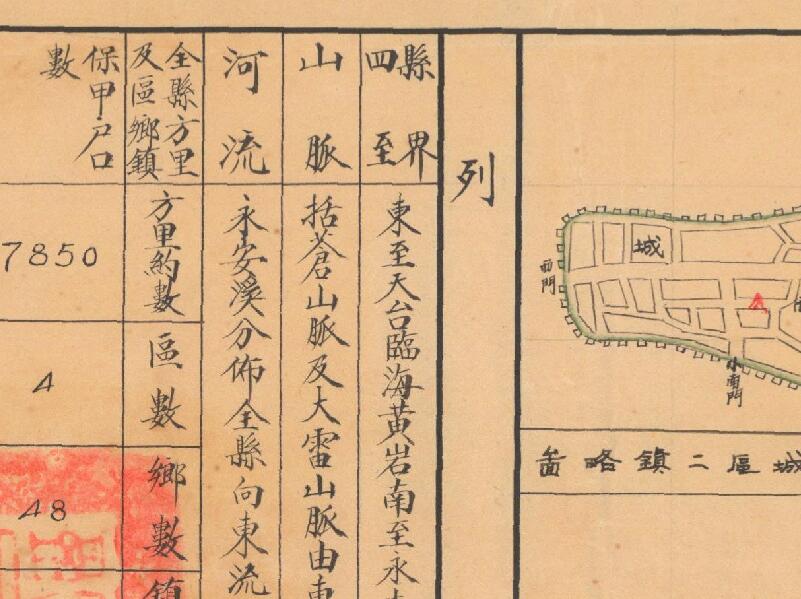 城
西門
小南門
城區二鎮略啚
列
縣界
四至
東至天台臨海黃岩南至永
山脈
括蒼山脈及大雷山脈由東
河流
永安溪分佈全縣向東流
全縣方里
及區鄉鎮
保甲戶口
數
方里約數
7850
區數
4
鄉數
48
鎮